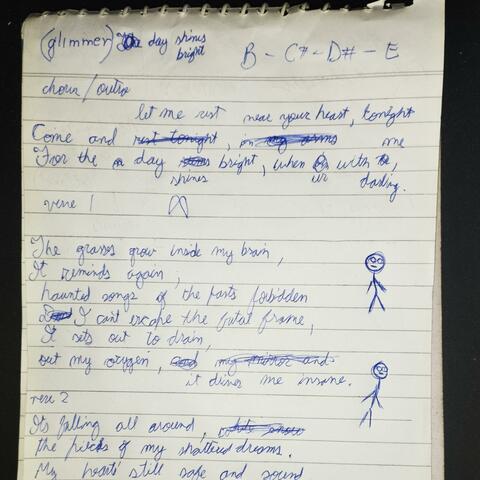 (glimmer) The day shines bright
B - C# - D# - E
chorus/outro
let me rest near your heart, tonight
Come and rest tonight, in my arms me
For the day bright, when with,
shines ur darling.
verse 1
The grasses grow inside my brain,
It reminds again,
haunted songs of the parts forbidden
I can't escape the fatal frame,
It sets out to drain,
out my oxygen, and my mirror and
it drives me insane.
verse 2
Its falling all around, white snow
the pieces of my shattered dreams.
My heart's still safe and sound